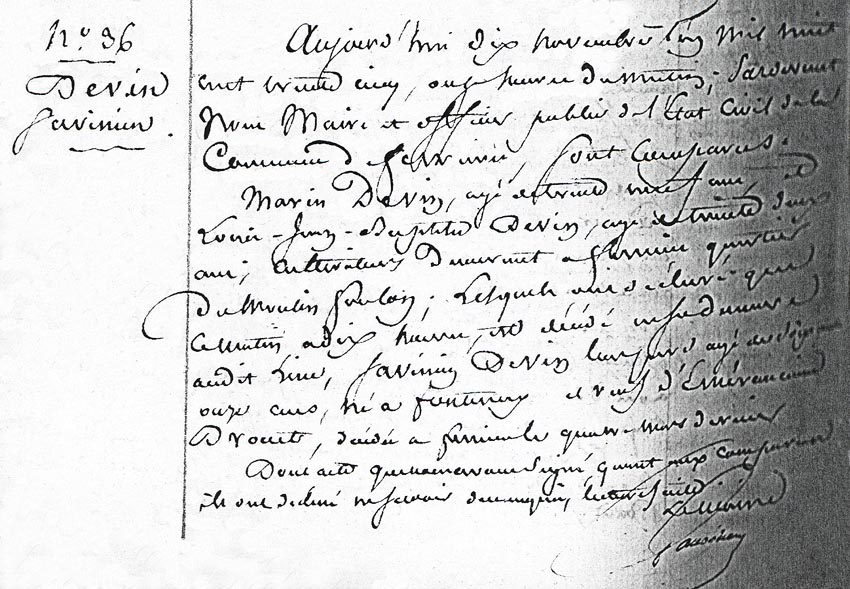 N.º 36
Devin
Savinien.
Aujourd'hui dix novembre mil huit
cent trente cinq, onze heures du matin; Pardevant
Nous Maire et officier public de l'État Civil de la
Commune de ferrière, sont comparus.
Marin Devin, agé de trente neuf ans, et
Louis-Jean-Baptiste Devin, agé de trente deux
ans, cultivateurs demeurant a ferrière quartier
du Moulin foulon; Lesquels ont déclaré que
ce Matin a dix heures, est décédé en sa demeure
audit lieu, Savinien Devin leur père agé de soixante
onze ans, né a fontenay et veuf d'Emérancienne
Drouet, décédée a ferrière le quatre Mars dernier
Dont acte que nous avons Signé quant aux comparans
ils ont déclaré ne savoir de ce requis, lecture faite